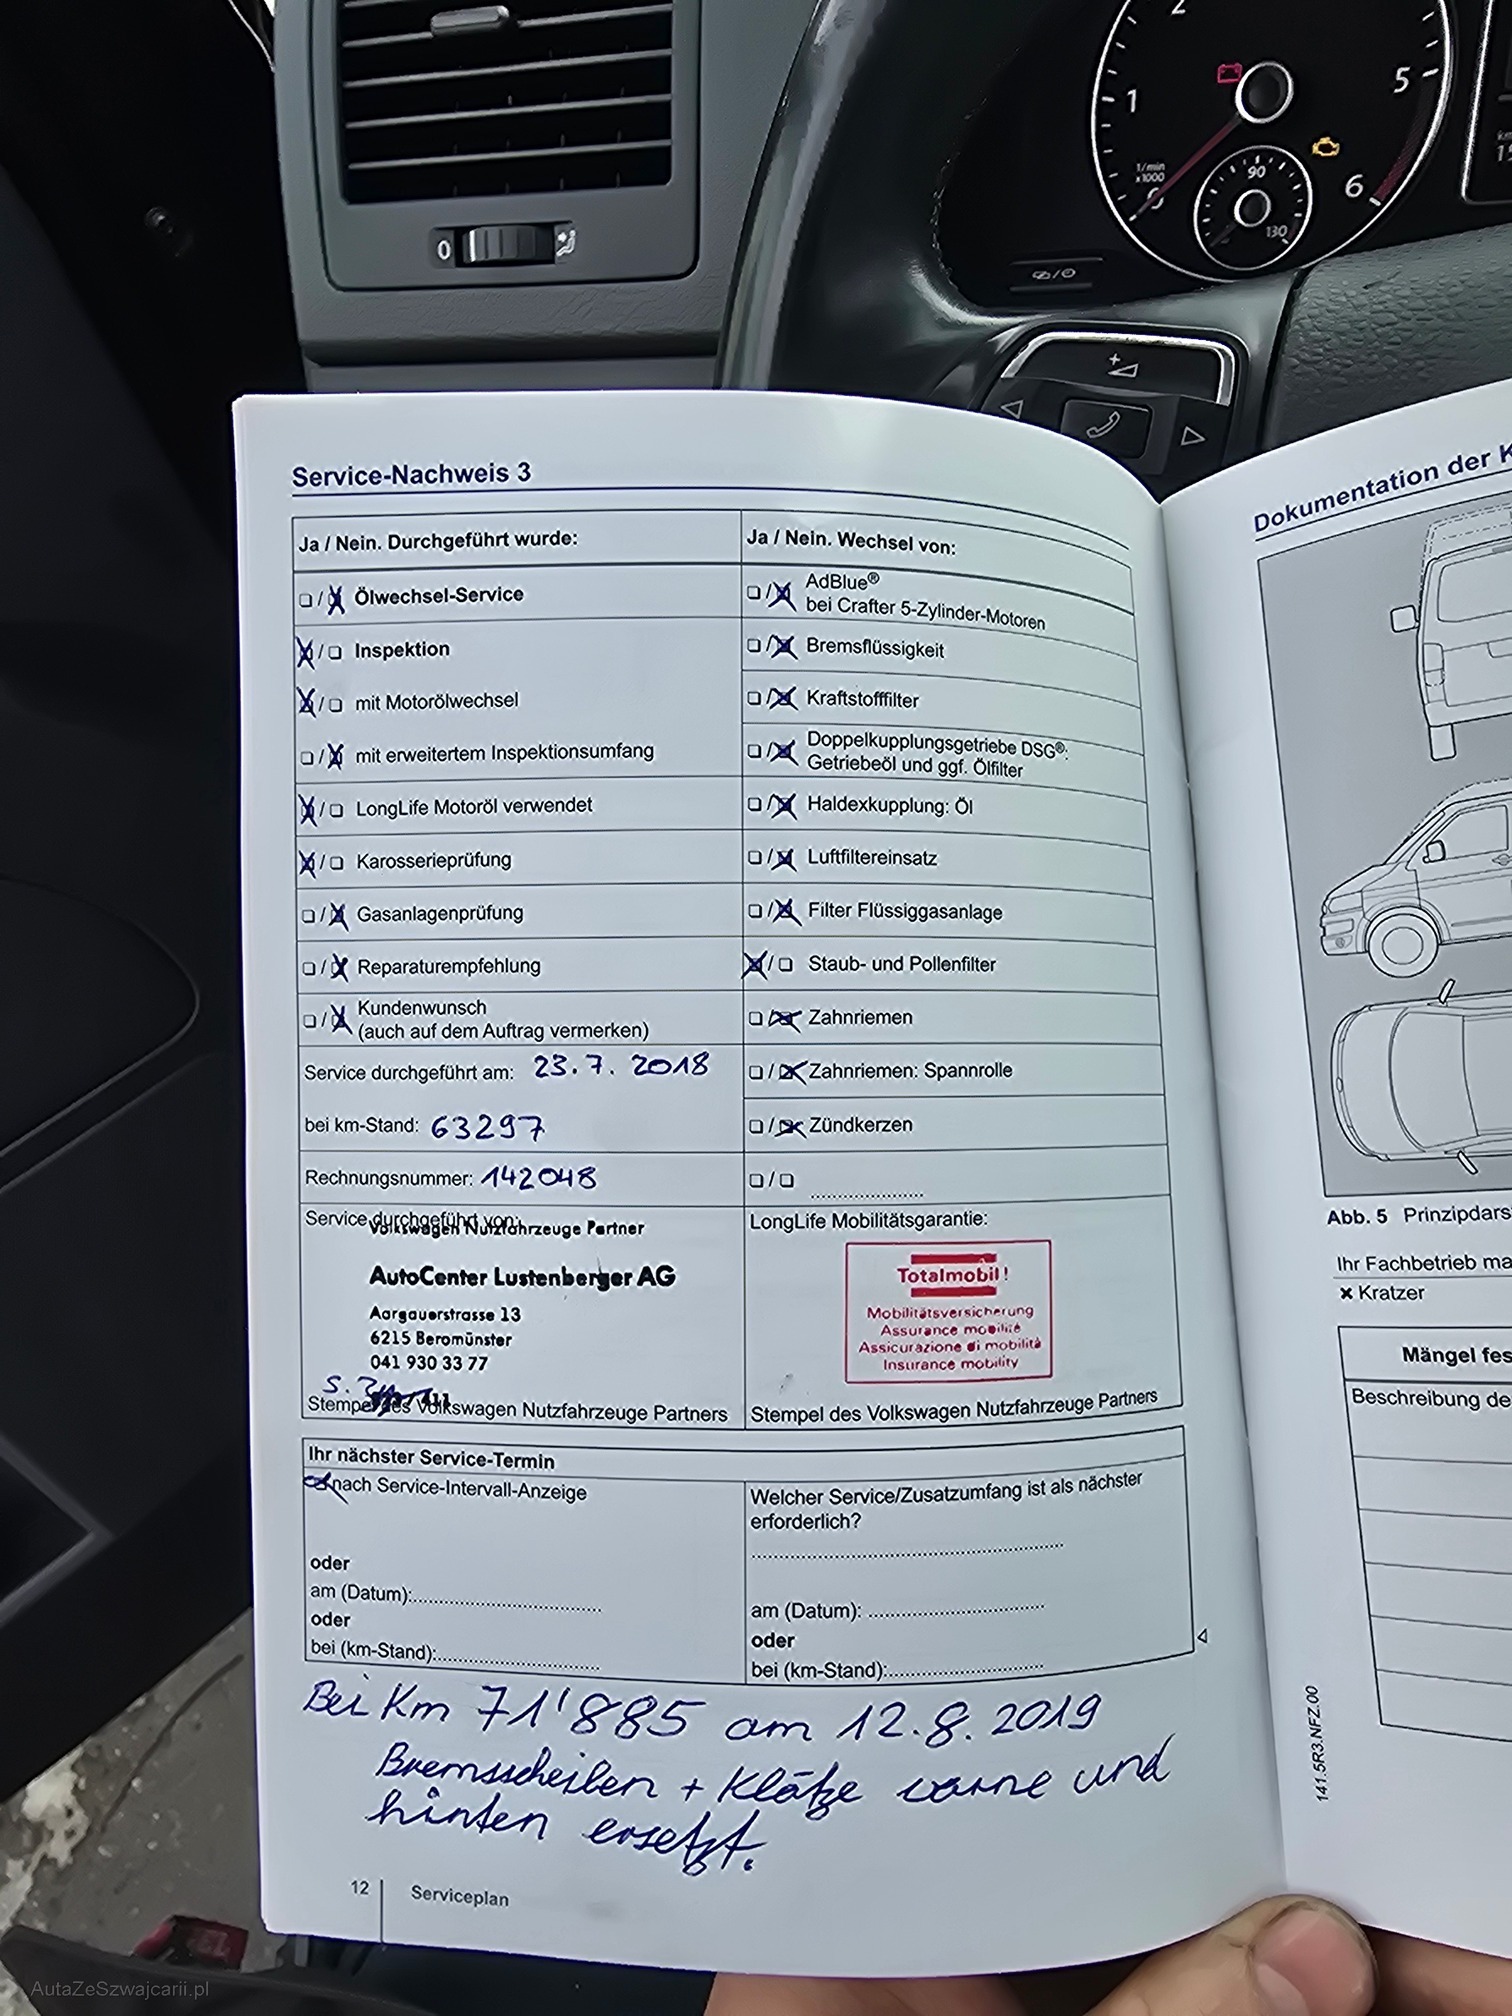 2
1
5
6
1/min
x1000
90
130
Service-Nachweis 3
Ja / Nein. Durchgeführt wurde:
Ölwechsel-Service
Inspektion
mit Motorölwechsel
mit erweitertem Inspektionsumfang
LongLife Motoröl verwendet
Karosserieprüfung
Gasanlagenprüfung
Reparaturempfehlung
Kundenwunsch
(auch auf dem Auftrag vermerken)
Service durchgeführt am: 23.7.2018
bei km-Stand: 63297
Rechnungsnummer: 142048
Service durchgeführt von:
Volkswagen Nutzfahrzeuge Partner
AutoCenter Lustenberger AG
Aargauerstrasse 13
6215 Beromünster
041 930 33 77
Stempel des Volkswagen Nutzfahrzeuge Partners
Ja / Nein. Wechsel von:
AdBlue®
bei Crafter 5-Zylinder-Motoren
Bremsflüssigkeit
Kraftstofffilter
Doppelkupplungsgetriebe DSG®:
Getriebeöl und ggf. Ölfilter
Haldexkupplung: Öl
Luftfiltereinsatz
Filter Flüssiggasanlage
Staub- und Pollenfilter
Zahnriemen
Zahnriemen: Spannrolle
Zündkerzen
LongLife Mobilitätsgarantie:
Totalmobil!
Mobilitätsversicherung
Assurance mobilité
Assicurazione di mobilità
Insurance mobility
Stempel des Volkswagen Nutzfahrzeuge Partners
Ihr nächster Service-Termin
nach Service-Intervall-Anzeige
oder
am (Datum):
oder
bei (km-Stand):
Welcher Service/Zusatzumfang ist als nächster
erforderlich?
am (Datum):
oder
bei (km-Stand):
Bei Km 71'885 am 12.8.2019
Bremsscheiben + Klötze vorne und
hinten ersetzt.
12 Serviceplan
Dokumentation der K
Abb. 5 Prinzipdars
Ihr Fachbetrieb ma
× Kratzer
Mängel fes
Beschreibung de
141.5R3.NFZ.00
AutaZeSzwajcarii.pl